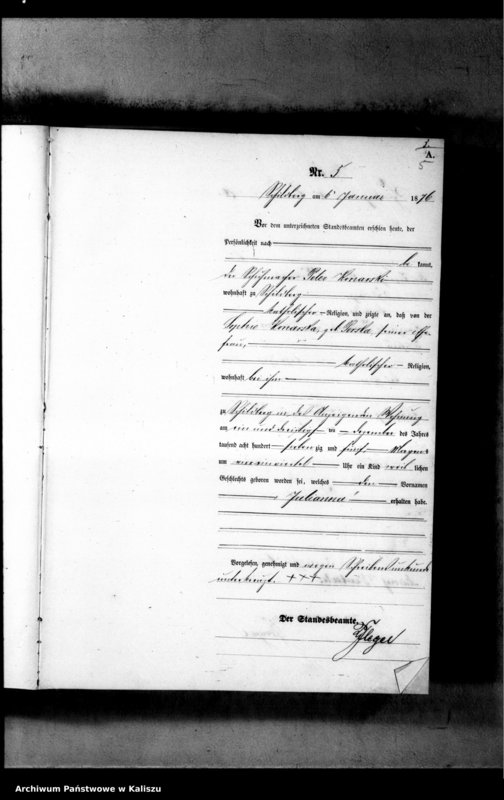 A.
5
Nr. 5
Schildberg am 6 Januar 1876
Vor dem unterzeichneten Standesbeamten erschien heute, der
Persönlichkeit nach
be kannt,
der Schuhmacher Peter Konarski
wohnhaft zu Schildberg
katholischer Religion, und zeigte an, daß von der
Sophie Konarska, geb. seiner Ehe-
frau,
katholischer Religion,
wohnhaft bei ihm
zu Schildberg in des Anzeigenden Wohnung
am ein und dreißigsten Dezember des Jahres
tausend acht hundert sieben zig und fünf Morgens
um Uhr ein Kind weib lichen
Geschlechts geboren worden sei, welches den Vornamen
Julianna erhalten habe.
Vorgelesen, genehmigt und wegen Schreibensunkunde
unterkreuzt. +++
Der Standesbeamte.
Archiwum Państwowe w Kaliszu